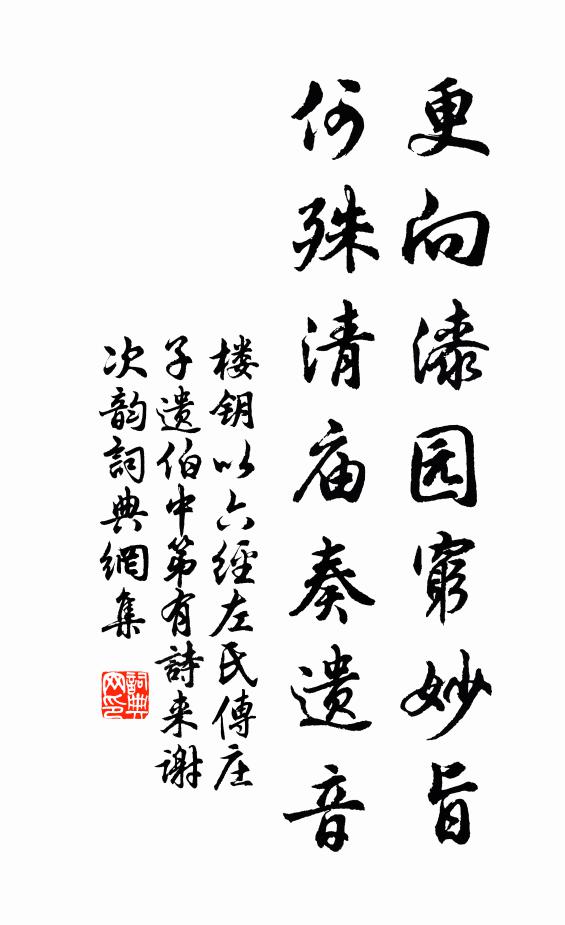 更向漆园窮妙旨
何殊清庙奏遗音
楼钥以六經左氏傳庄
子遗伯中第有詩来谢
次韵詞典網集
詞典网印